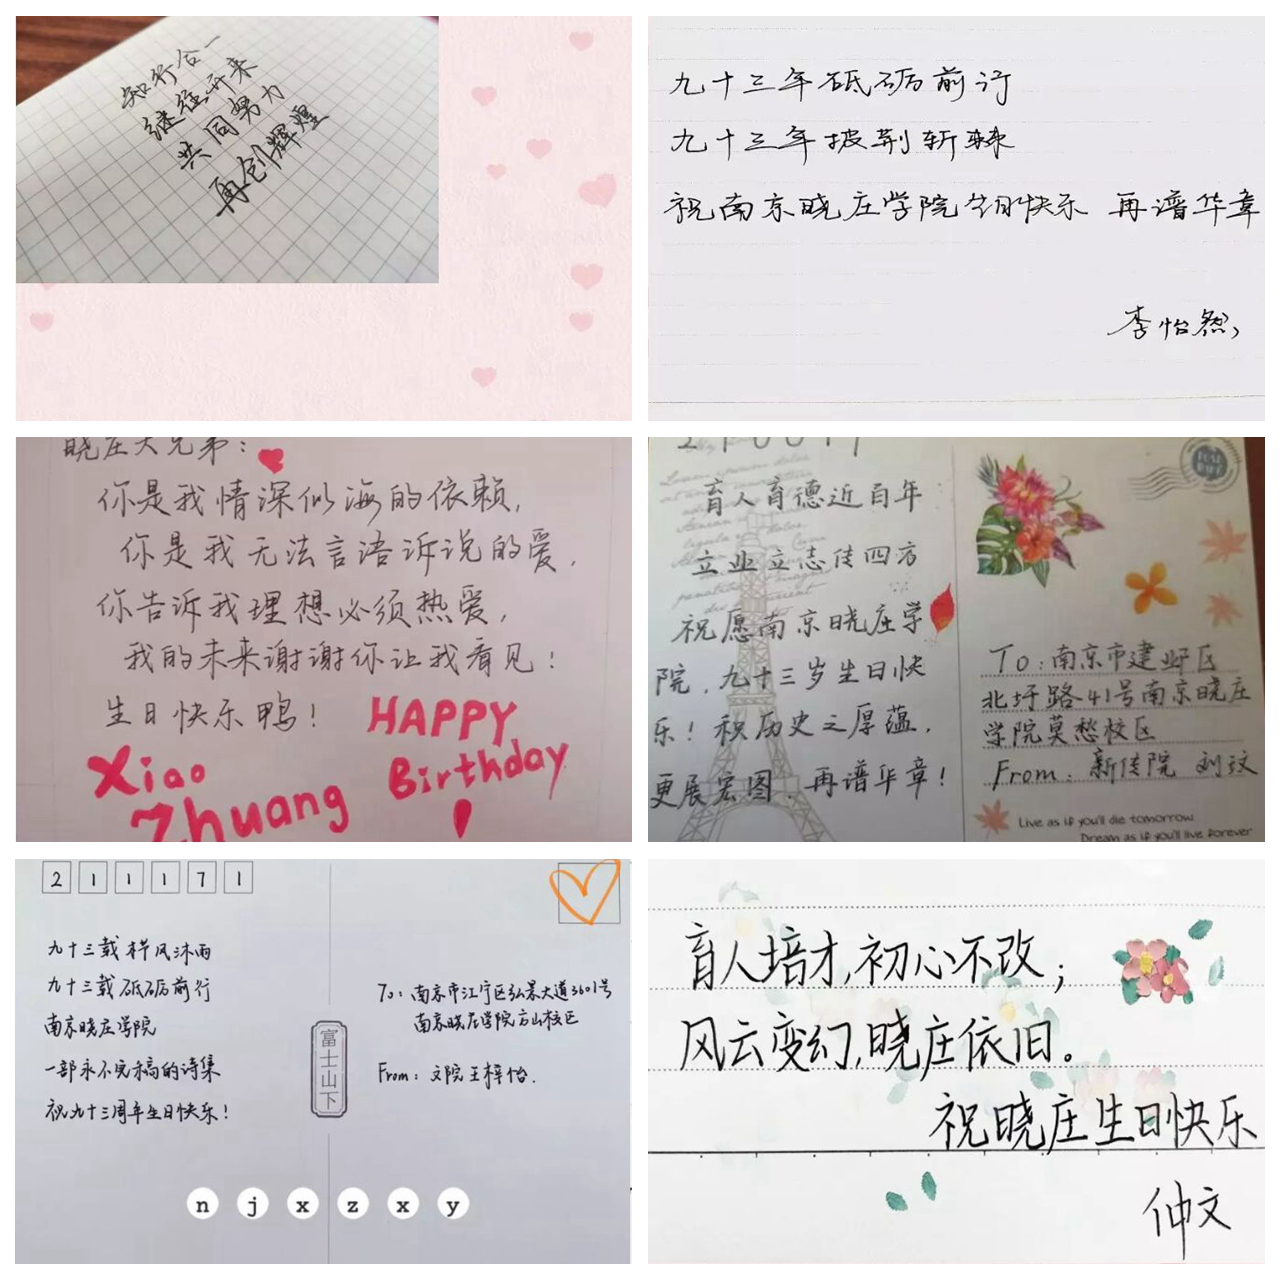 知行合一
继往开来
共同努力
再创辉煌
九十三年砥砺前行
九十三年披荆斩棘
祝南京晓庄学院生日快乐 再谱华章
李怡然
晓庄大兄弟：
你是我情深似海的依赖，
你是我无法言语诉说的爱，
你告诉我理想必须热爱，
我的未来谢谢你让我看见！
生日快乐鸭！
HAPPY
Birthday
!
Xiao
Zhuang
育人育德近百年
立业立志传四方
祝愿南京晓庄学
院，九十三岁生日快
乐！积历史之厚蕴，
更展宏图，再谱华章！
To：南京市建邺区
北圩路41号南京晓庄
学院莫愁校区
From：新传院 刘玟
Live as if you'll die tomorrow
Dream as if you'll live forever
211171
九十三载栉风沐雨
九十三载砥砺前行
南京晓庄学院
一部永不完稿的诗集
祝九十三周年生日快乐！
富士山下
To：南京市江宁区弘景大道3601号
南京晓庄学院方山校区
From：文院王梓怡.
njxzxy
育人培才，初心不改；
风云变幻，晓庄依旧。
祝晓庄生日快乐
仲文